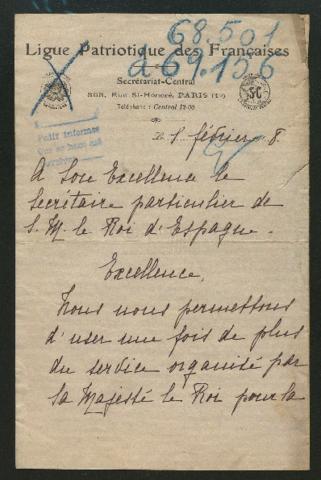 68.501
a 69.156
Ligue Patriotique des Françaises
Secrétariat-Central
368, Rue St-Honoré, PARIS (1er)
Téléphone : Central
Pedir informes
février 8.
A Son Excellence le
Secrétaire particulier de
S. M. le Roi d'Espagne.
Excellence,
Nous nous permettons
d'user une fois de plus
du service organisé par
Sa Majesté le Roi pour la